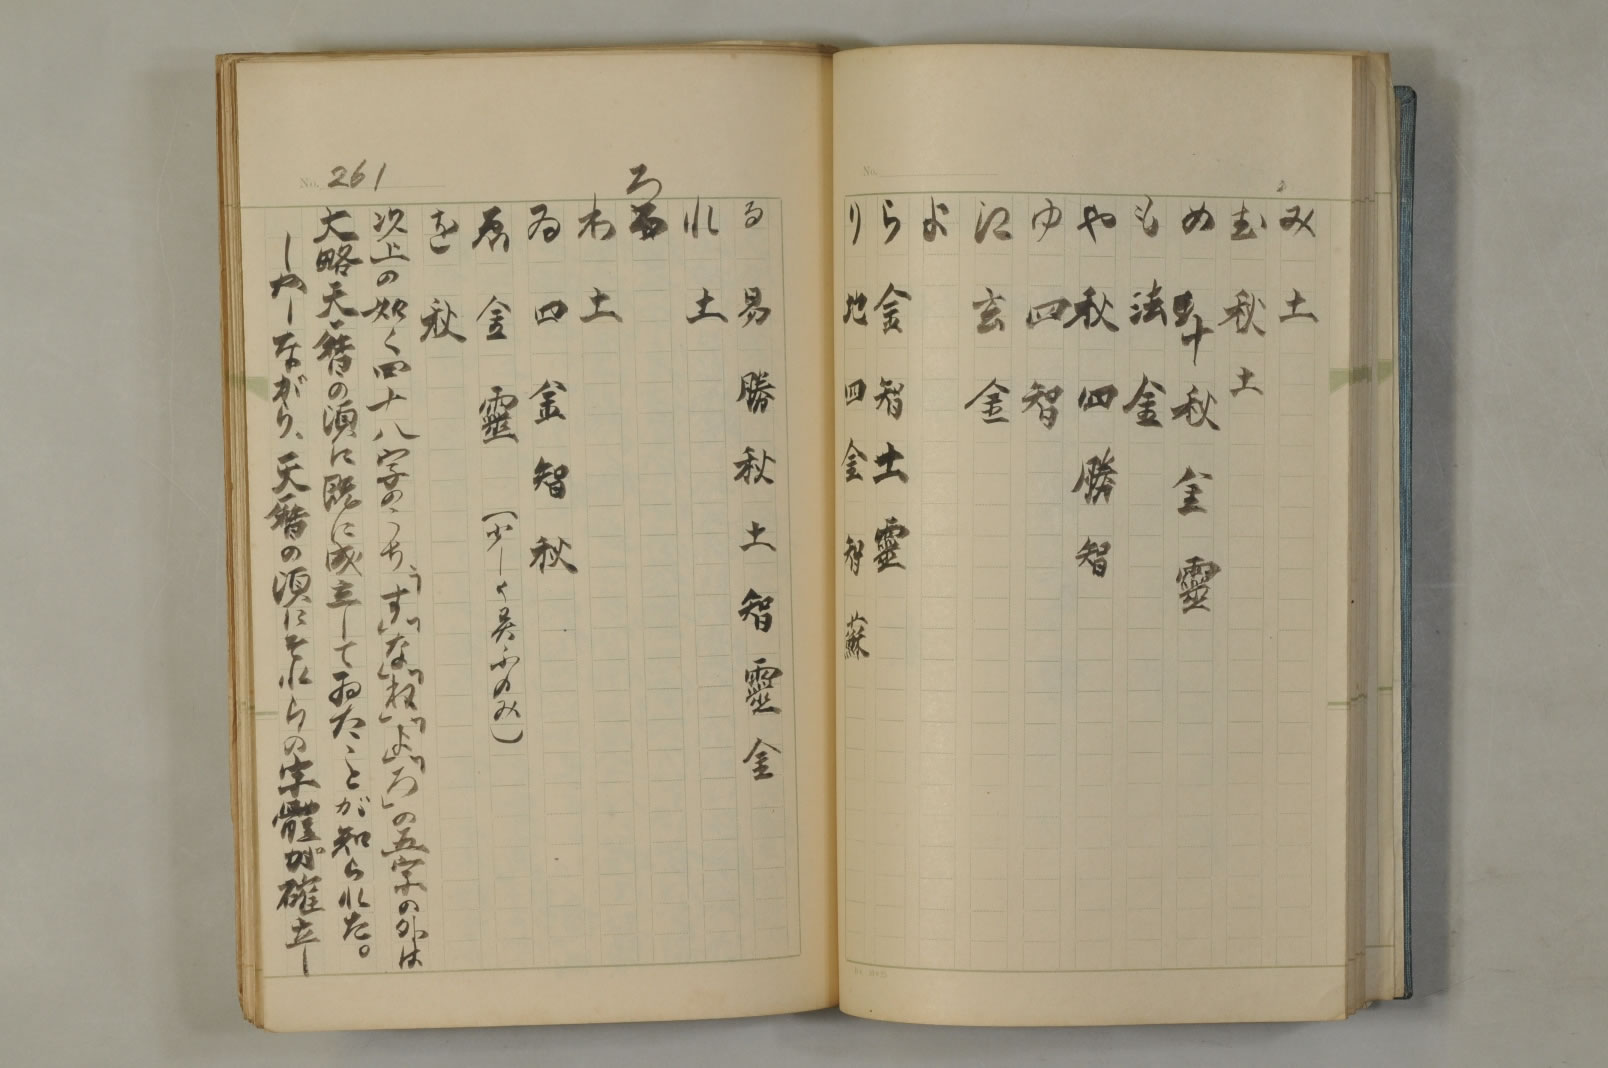 No.
み 土
む 秋 土
め 十 秋 金 靈
も 法 金
や 秋 四 勝 智
ゆ 四 智
江 玄 金
よ
ら 金 智 土 靈
り 地 四 金 智 蘇
No. 261
る 易 勝 秋 土 智 靈 金
れ 土
ろ
わ 土
ゐ 四 金 智 秋
金 靈 (少しく異ふのみ)
を 秋
次上の如く四十八字のうち、「す」「な」「ね」「よ」「ろ」の五字の外は
大略天暦の頃に既に成立してゐたことが知られた。
しかしながら、天暦の頃にそれらの字體が確立し